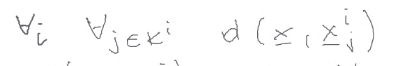 ∀i ∀j∈κⁱ d(x̲, x̲ⱼⁱ)